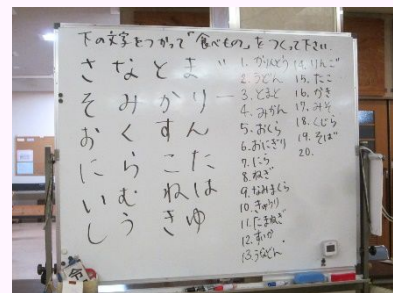 下の文字をつかって「食べもの」をつくって下さい.
さ な と ま ゛
そ み か り ー
お く す ん
に ら こ た
い む ね は
し う き ゆ
1. かりんとう
2. うどん
3. とまと
4. みかん
5. おくら
6. おにぎり
7. にら
8. ねぎ
9.
10. きゅうり
11. たまねぎ
12. すいか
13. うなどん
14. りんご
15. たこ
16. かき
17. みそ
18. くじら
19. そば
20.